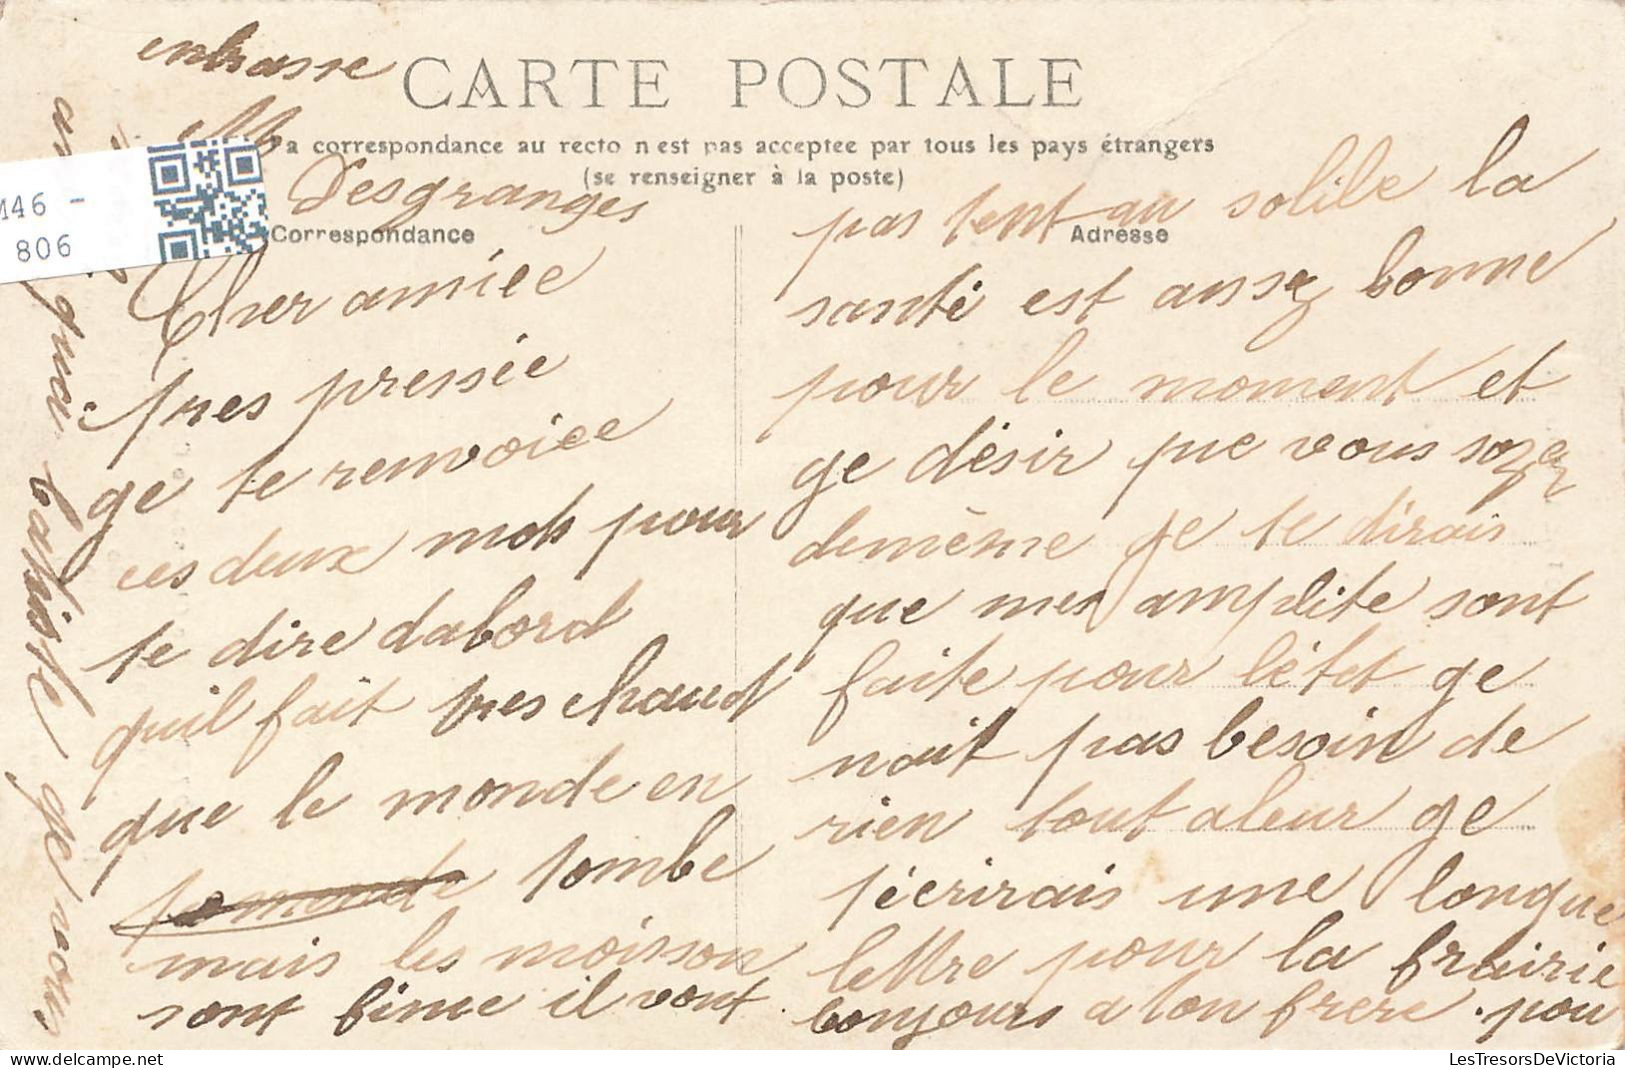 CARTE POSTALE
a correspondance au recto n'est pas acceptee par tous les pays étrangers
(se renseigner à la poste)
Correspondance
Adresse
M46 -
806
Cher amiee
tres pressée
ge te renvoiee
ces deux mots pour
te dire dabord
quil fait tres chaud
que le monde en
tombe
mais les moisson
sont finie il vont
pas tent au solile la
santé est assez bonne
pour le moment et
ge désir que vous soyez
demême je te dirais
que mes amplite sont
faite pour létet ge
nait pas besoin de
rien tout aleur ge
técrirais une longue
lettre pour la frairie
bonjours a ton frere pou
qui Batiste ge vous
enbrasse
Desgranges
LesTresorsDeVictoria